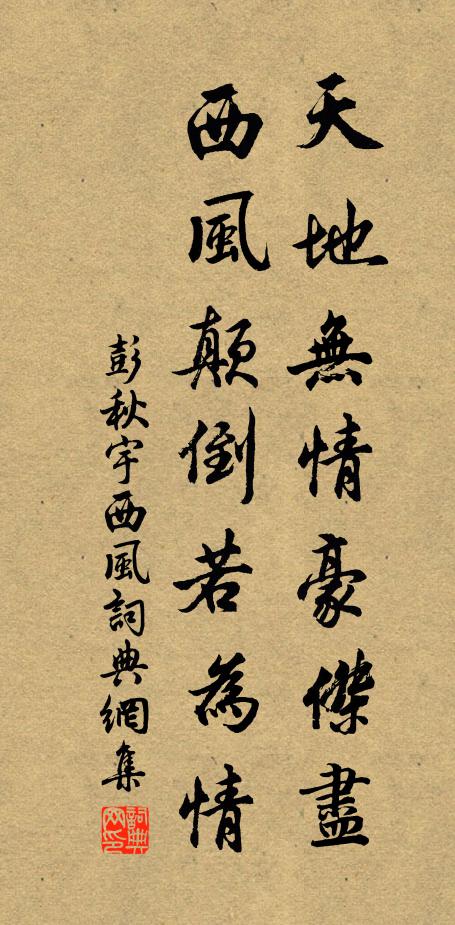 天地無情豪傑盡
西風顛倒若為情
彭秋宇西風詞典網集
詞典网印